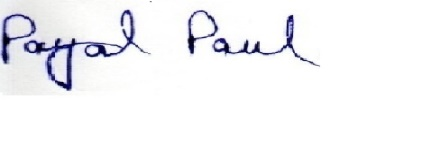 Payal Paul